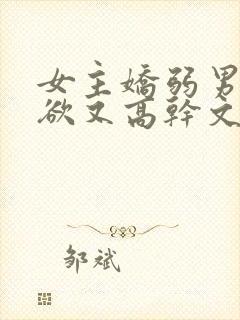 女主嬌弱男
欲又高幹文
邹斌